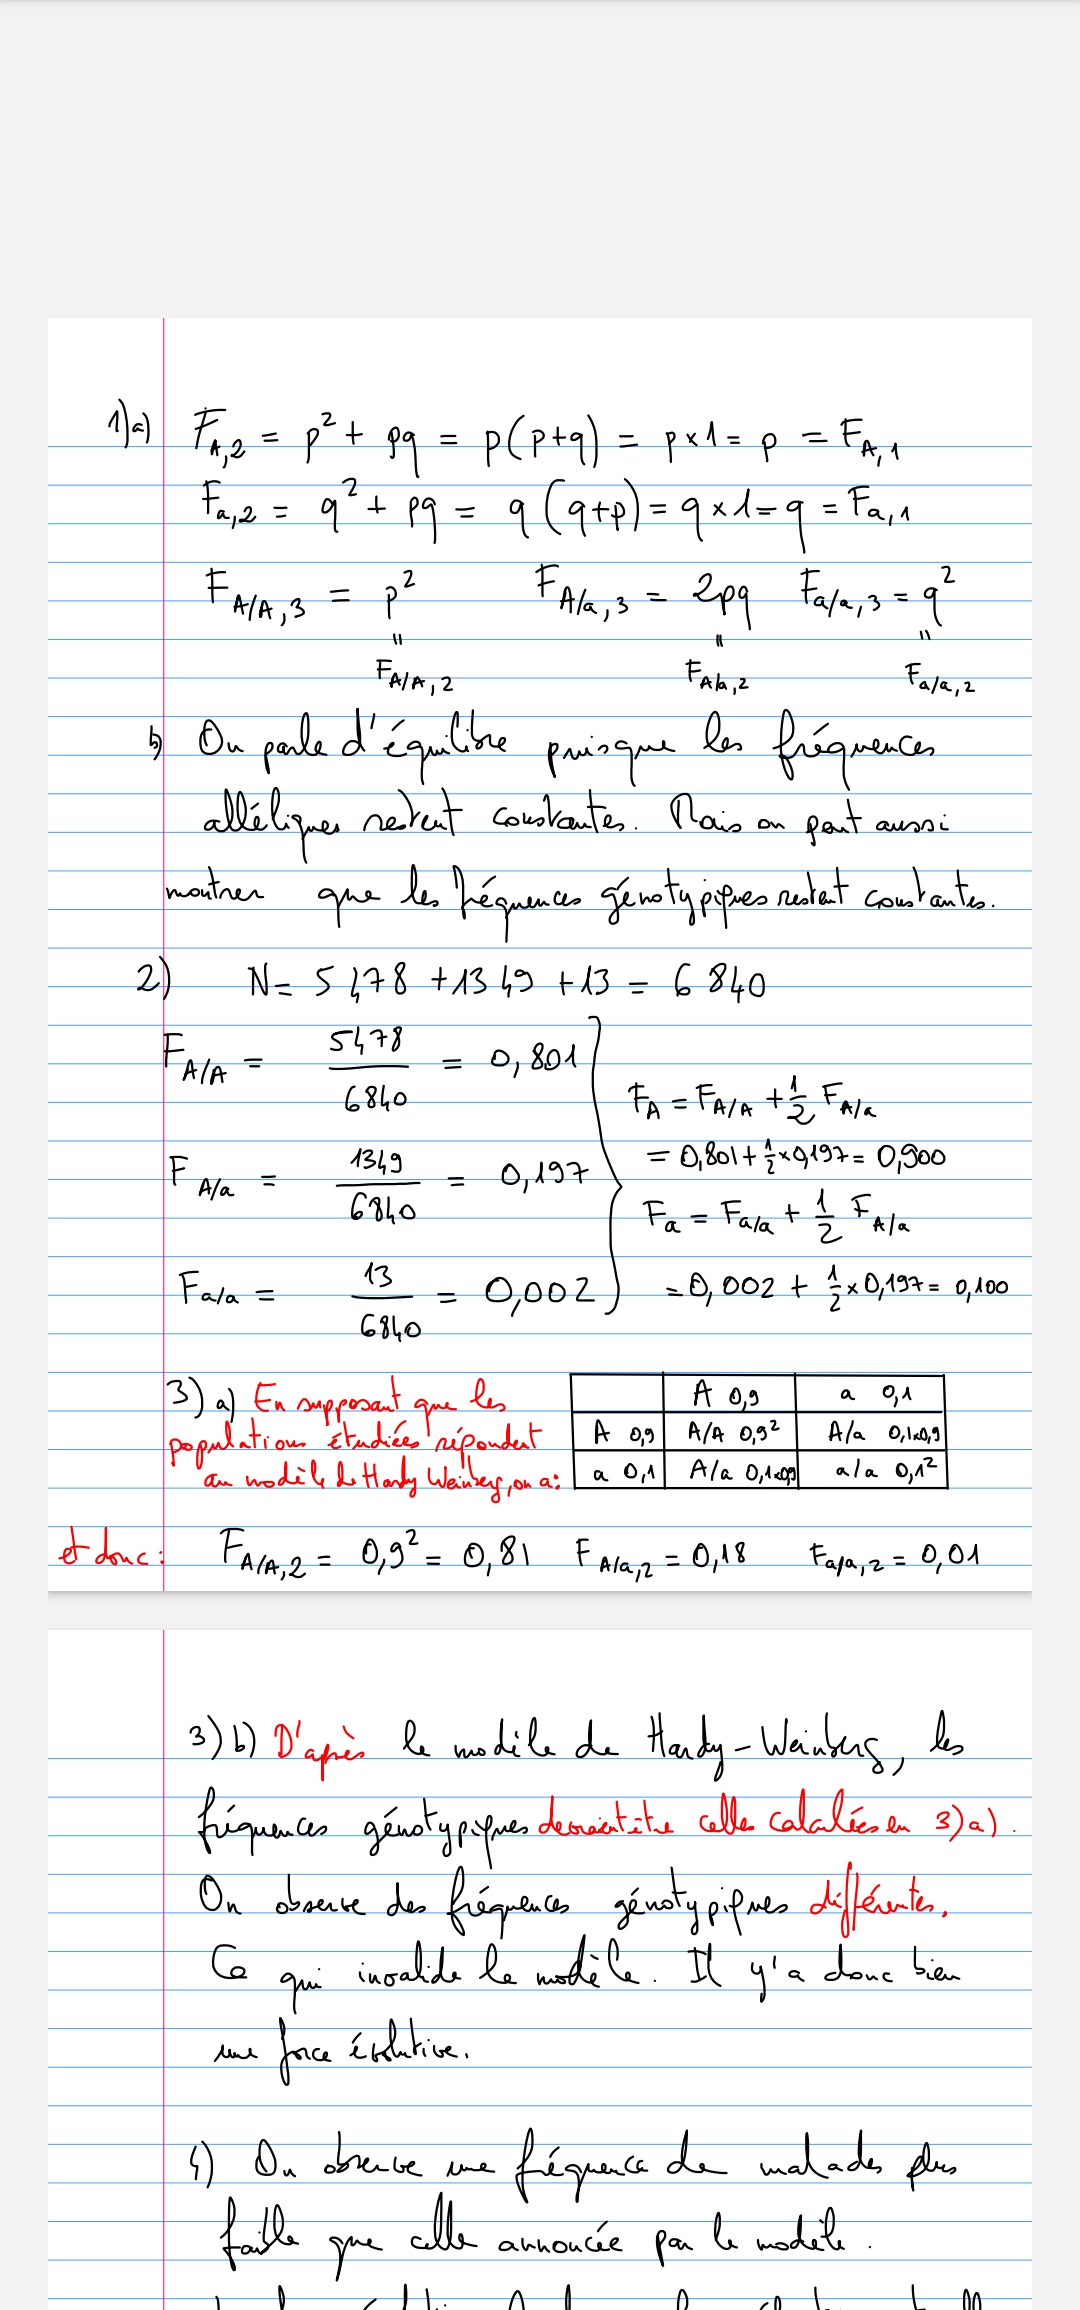 1)a) F_A,2 = p² + pq = p(p+q) = p×1 = p = F_A,1
F_a,2 = q² + pq = q(q+p) = q×1 = q = F_a,1
F_A/A,3 = p² F_A/a,3 = 2pq F_a/a,3 = q²
" " "
F_A/A,2 F_A/a,2 F_a/a,2
b) On parle d'équilibre puisque les fréquences
alléliques restent constantes. Mais on peut aussi
montrer que les fréquences génotypiques restent constantes.
2) N = 5478 + 1349 + 13 = 6840
F_A/A = 5478/6840 = 0,801
F_A = F_A/A + 1/2 F_A/a
= 0,801 + 1/2 × 0,197 = 0,900
F_A/a = 1349/6840 = 0,197
F_a = F_a/a + 1/2 F_A/a
F_a/a = 13/6840 = 0,002
= 0,002 + 1/2 × 0,197 = 0,100
3) a) En supposant que les
populations étudiées répondent
au modèle de Hardy Weinberg, on a:
A 0,9 a 0,1
A 0,9 A/A 0,9² A/a 0,1×0,9
a 0,1 A/a 0,1×0,9 a/a 0,1²
et donc: F_A/A,2 = 0,9² = 0,81 F_A/a,2 = 0,18 F_a/a,2 = 0,01
3) b) D'après le modèle de Hardy-Weinberg, les
fréquences génotypiques devraient être celles calculées en 3)a).
On observe des fréquences génotypiques différentes.
Ce qui invalide le modèle. Il y'a donc bien
une force évolutive.
4) On observe une fréquence de malades plus
faible que celle annoncée par le modèle.